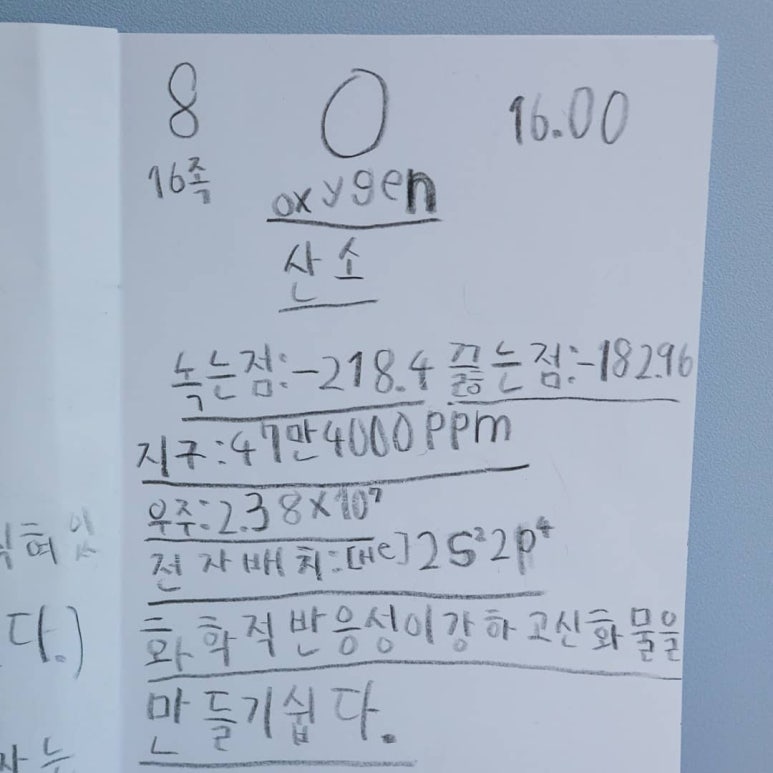 8 O 16.00
16족 oxygen
산소
녹는점:-218.4 끓는점:-182.96
지구:47만4000ppm
우주:2.38×10⁷
전자배치:[He]2S²2P⁴
화학적반응성이강하고신화물을
만들기쉽다.
다.)